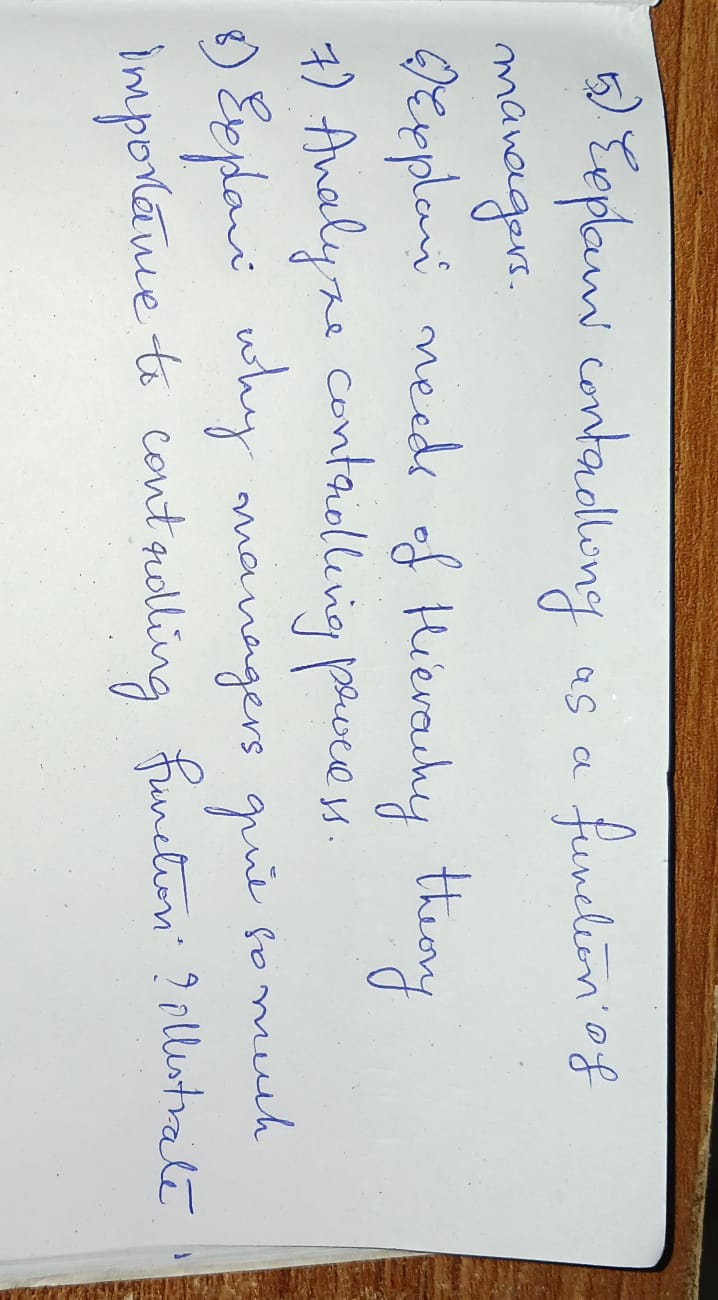 5.) Explain controllong as a function of
managers.
6.) Explain needs of Hierarchy theory
7.) Analyze controlling process.
8) Explain why managers give so much
importance to controlling function? illustrate.